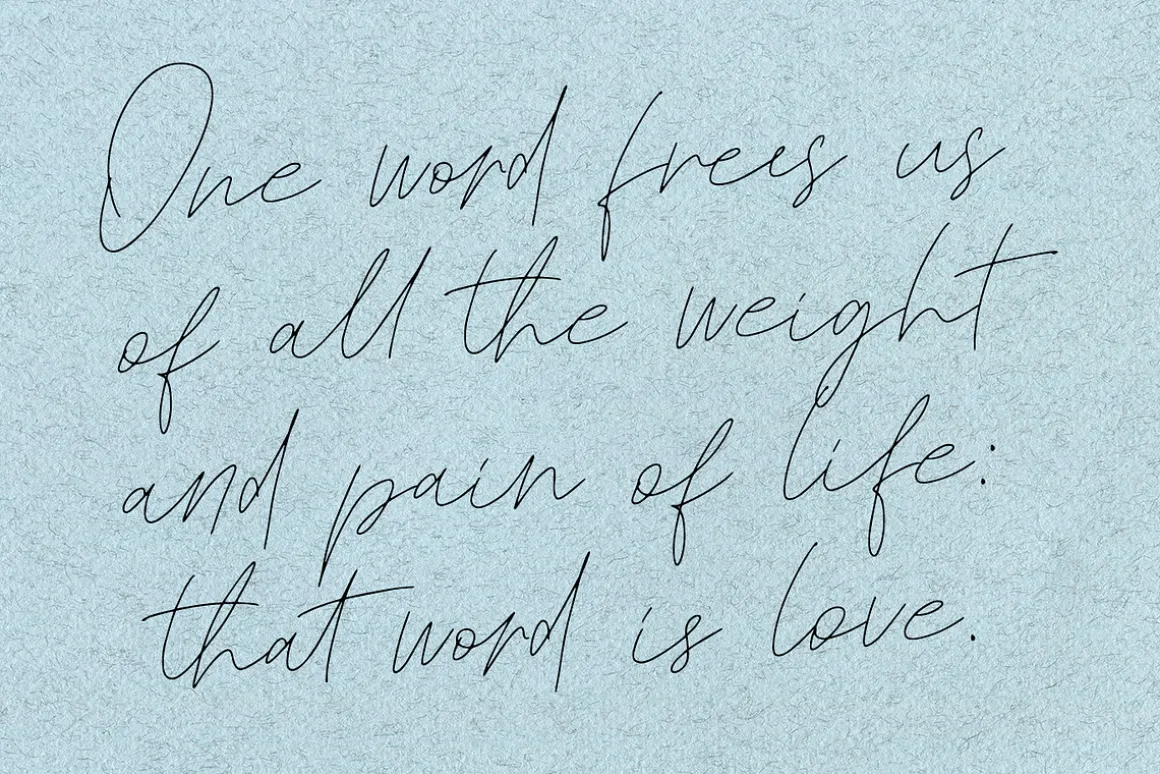 One word frees us
of all the weight
and pain of life:
that word is love.